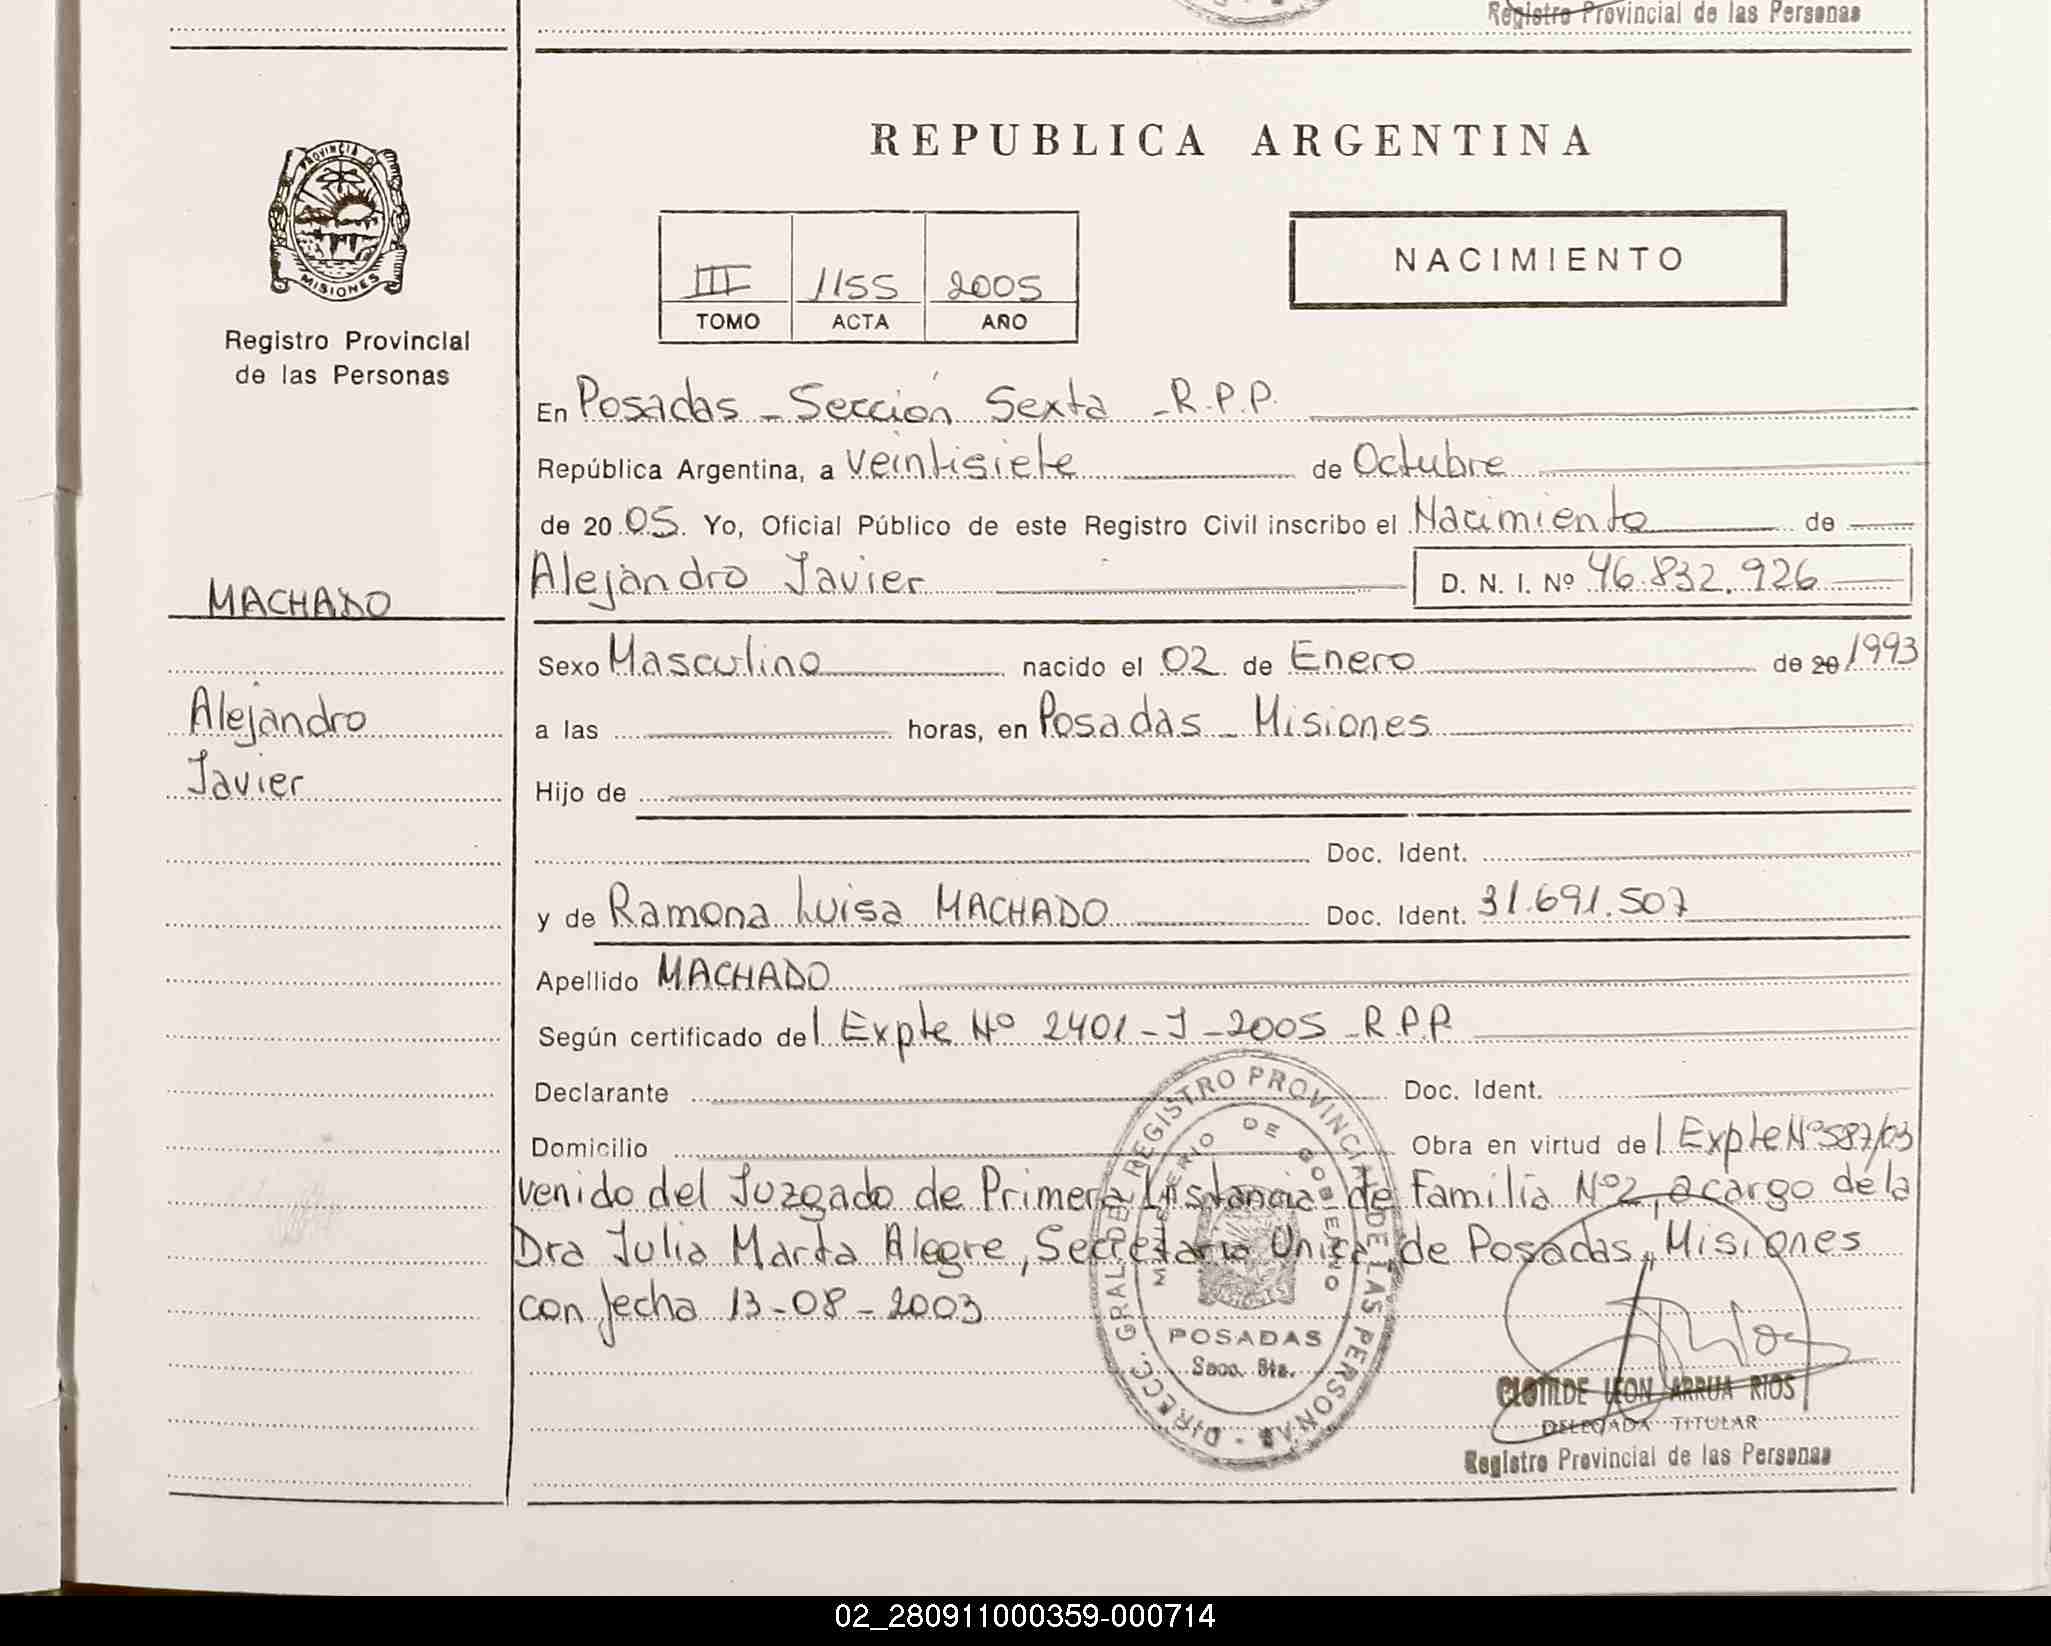 Registro Provincial de las Personas
PROVINCIA DE
MISIONES
Registro Provincial
de las Personas
MACHADO
Alejandro
Javier
REPUBLICA ARGENTINA
III 1155 2005
TOMO ACTA AÑO
NACIMIENTO
En Posadas - Sección Sexta - R.P.P.
República Argentina, a veintisiete de Octubre
de 20 05. Yo, Oficial Público de este Registro Civil inscribo el Nacimiento de
Alejandro Javier D. N. I. Nº 46.832.926
Sexo Masculino nacido el 02 de Enero de 20 1993
a las horas, en Posadas - Misiones
Hijo de
Doc. Ident.
y de Ramona Luisa MACHADO Doc. Ident. 31.691.507
Apellido MACHADO
Según certificado del Expte Nº 2401-J-2005-R.P.P.
Declarante Doc. Ident.
Domicilio Obra en virtud del Expte Nº 587/03
venido del Juzgado de Primera Instancia de Familia Nº2, a cargo de la
Dra Julia Marta Alegre, Secretaria Unica de Posadas, Misiones
con fecha 13-08-2003
DIRECC. GRAL. DEL REGISTRO PROVINCIAL DE LAS PERSONAS -
MINISTERIO DE GOBIERNO
POSADAS
Secc. 6ta.
CLOTILDE LEON ARRUA RIOS
DELEGADA TITULAR
Registro Provincial de las Personas
02_280911000359-000714